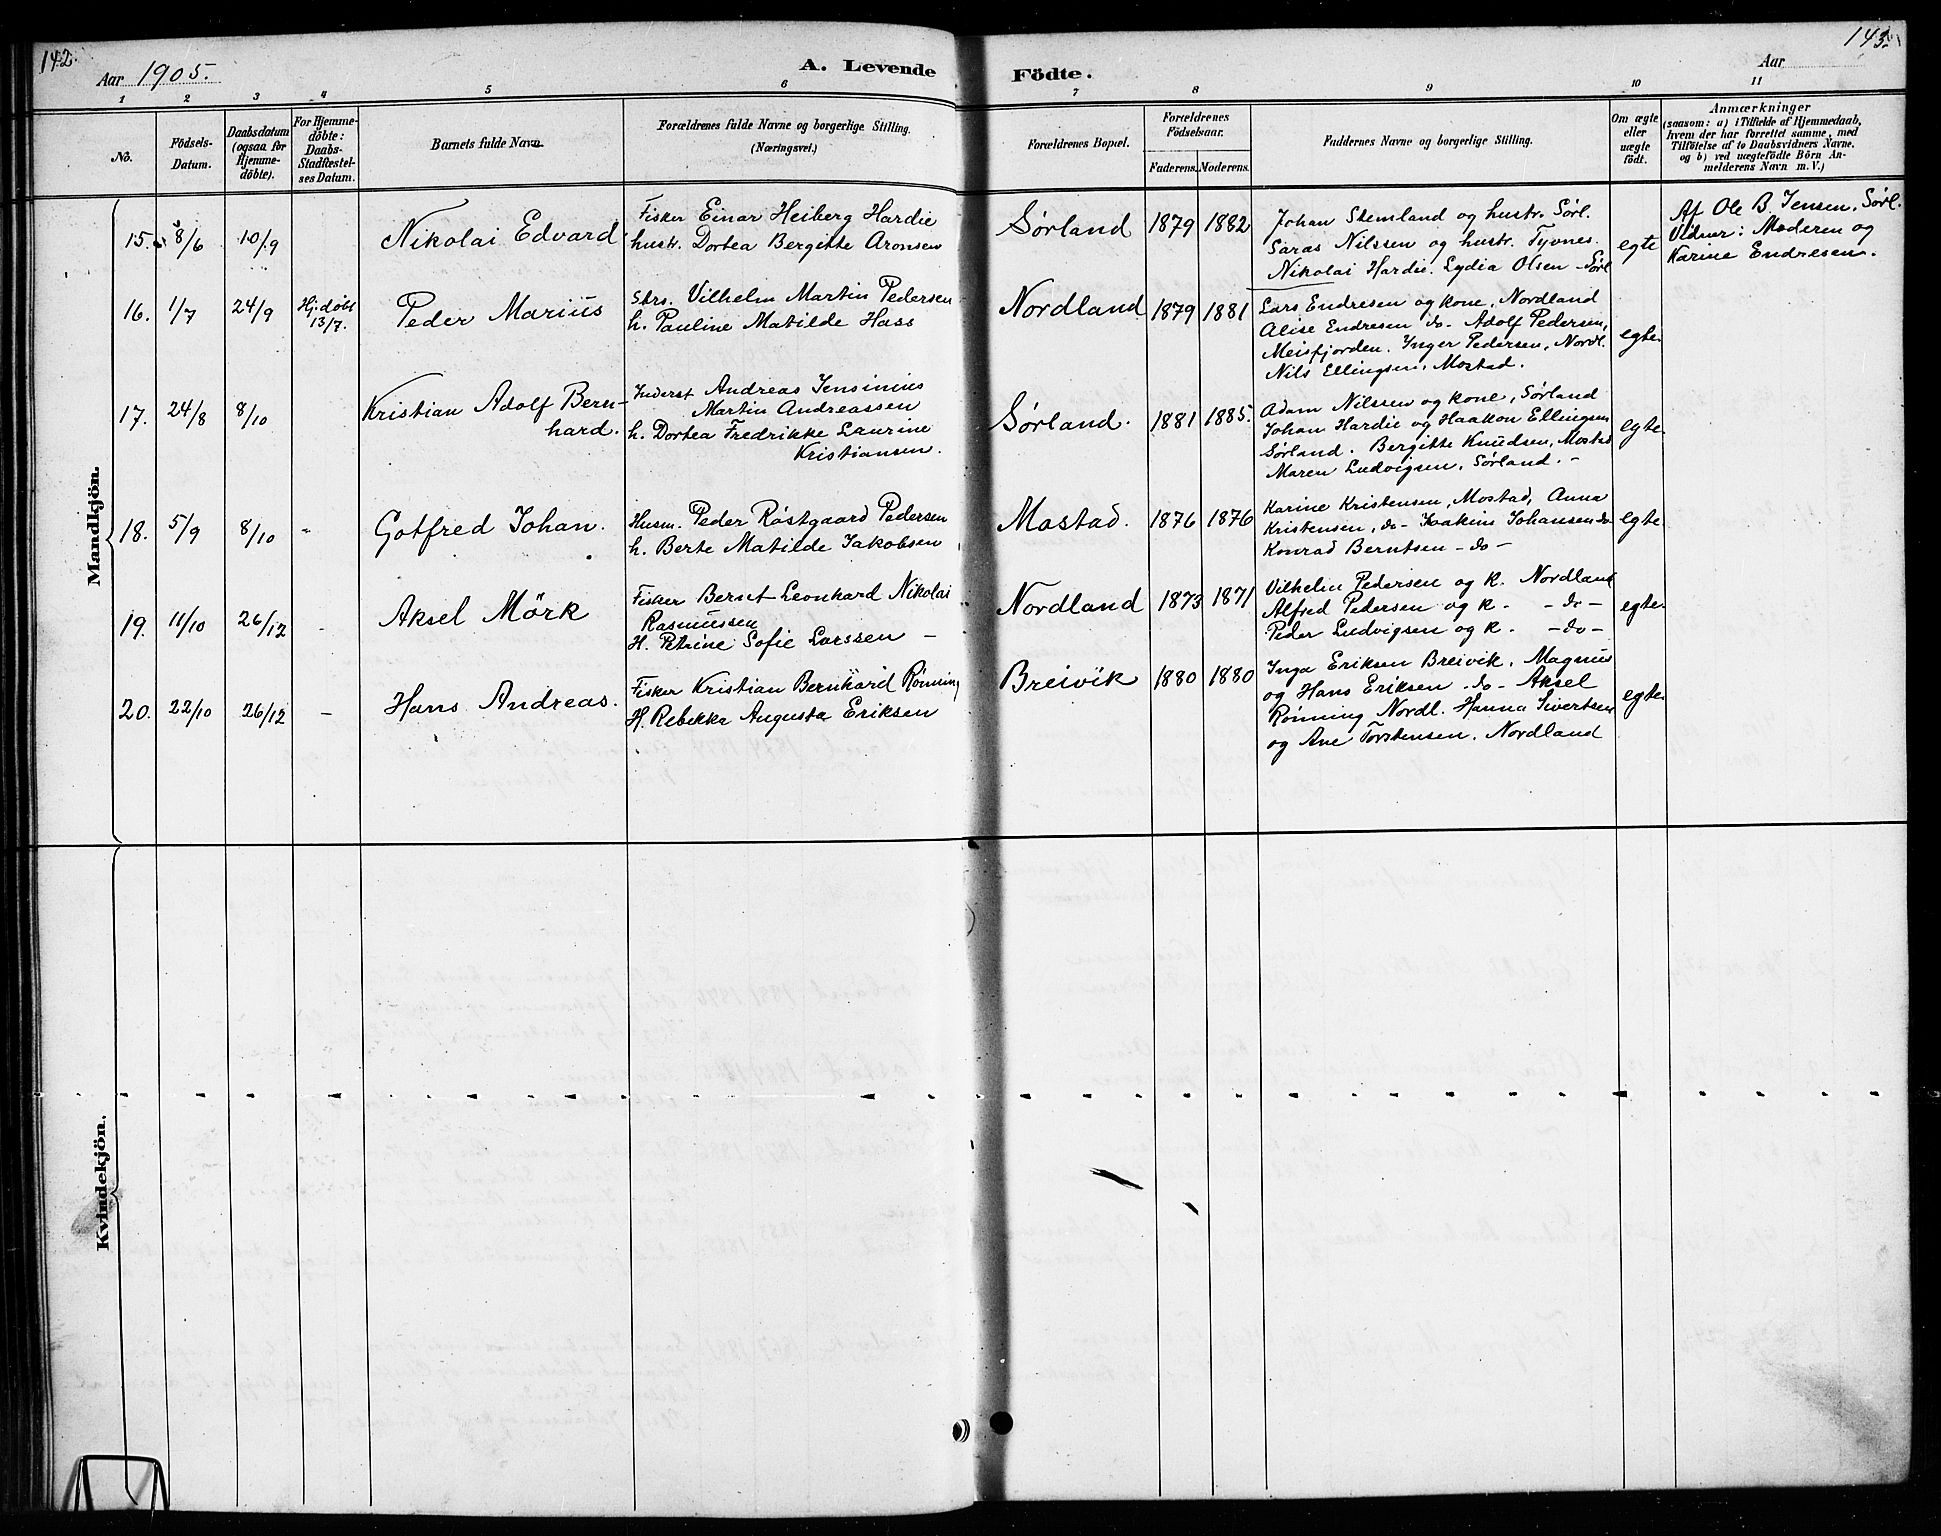 142.
143.
Aar 1905.
A. Levende
Födte.
Aar
1 2 3 4 5 6 7 8 9 10 11
No.
Födsels-
Datum.
Daabsdatum
(ogsaa for
Hjemme-
döbte).
For Hjemme-
döbte:
Daabs-
Stadfæstel-
ses Datum.
Barnets fulde Navn.
Forældrenes fulde Navne og borgerlige Stilling.
(Næringsvei.)
Forældrenes Bopæl.
Forældrenes
Födselsaar.
Faderens. Moderens.
Faddernes Navne og borgerlige Stilling.
Om ægte
eller
uægte
födt.
Anmærkninger
(saasom: a) i Tilfælde af Hjemmedaab,
hvem der har forrettet samme, med
Tilföielse af to Daabsvidners Navne.
og b) ved uægtefödte Börn An-
melderens Navn m. V.)
Mandkjön.
15. 8/6 10/9
Nikolai Edvard
Fisker Einar Heiberg Hardie
hustr. Dortea Bergitte Aronsen
Sørland 1879 1882
Johan Stemland og hustr. Sørl.
Saras Nilssen og hustr. Tyvnes.
Nikolai Hardie. Lydia Olsen - Sørl
egte
Af Ole B. Jensen, Sørl.
Vidner: Moderen og
Karine Endresen.
16. 1/7 24/9
Hj. døbt
13/7.
Peder Marius
Strs. Vilhelm Martin Pedersen
h. Pauline Matilde Hass
Nordland 1879 1881
Lars Endresen og kone, Nordland
Alise Endresen do - Adolf Pedersen,
Meisfjorden. Inger Pedersen, Nordl.
Nils Ellingsen, Mostad.
egte.
17. 24/8 8/10
Kristian Adolf Bern-
hard.
Inderst Andreas Jensinius
Martin Andreassen
h. Dortea Fredrikke Laurine
Kristiansen.
Sørland. 1881 1885.
Adam Nilssen og kone, Sørland
Johan Hardie og Haakon Ellingsen
Sørland. Bergitte Knudsen, Mostad
Maren Ludvigsen, Sørland. -
egte.
18. 5/9 8/10 -
Gotfred Johan.
Husm. Peder Røstgaard Pedersen
h. Berte Matilde Jakobsen
Mostad. 1876 1876
Karine Kristensen, Mostad, Anna
Kristensen, do - Joakins Johansen do
Konrad Berntsen - do -
egte
19. 11/10 26/12 -
Aksel Mörk
Fisker Bernt Leonhard Nikolai
Rasmussen
H. Petrine Sofie Larssen -
Nordland 1873 1871
Vilhelm Pedersen og k. Nordland
Alfred Pedersen og k. - do -
Peder Ludvigsen og k. - do -
egte.
20. 22/10 26/12 -
Hans Andreas.
Fisker Kristian Bernhard Rønning
H. Rebekka Augusta Eriksen
Breivik 1880 1880
Inga Eriksen Breivik, Magnus
og Hans Eriksen - do - Aksel
Rønning Nordl. Hanna Sivertsen
og Ane Torstensen, Nordland
egte.
Kvindekjön.